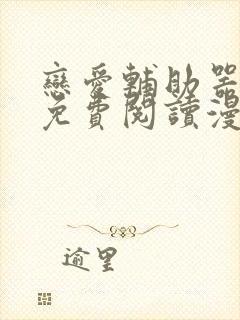 戀愛輔助器
免費閱讀漫
逾里